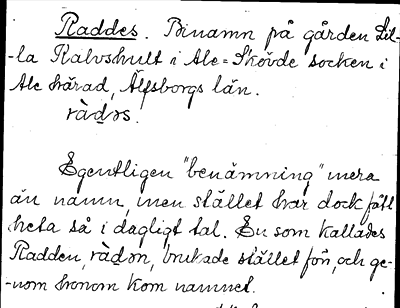 Raddes. Binamn på gården Lil-
-la Kalvshult i Ale-Skövde socken i
Ale härad, Älfsborgs län.
ràdəs.
Egentligen "benämning" mera
än namn, men stället har dock fått
heta så i dagligt tal. En som kallades
Radden, ràdən, brukade stället förr, och ge-
-nom honom kom namnet.